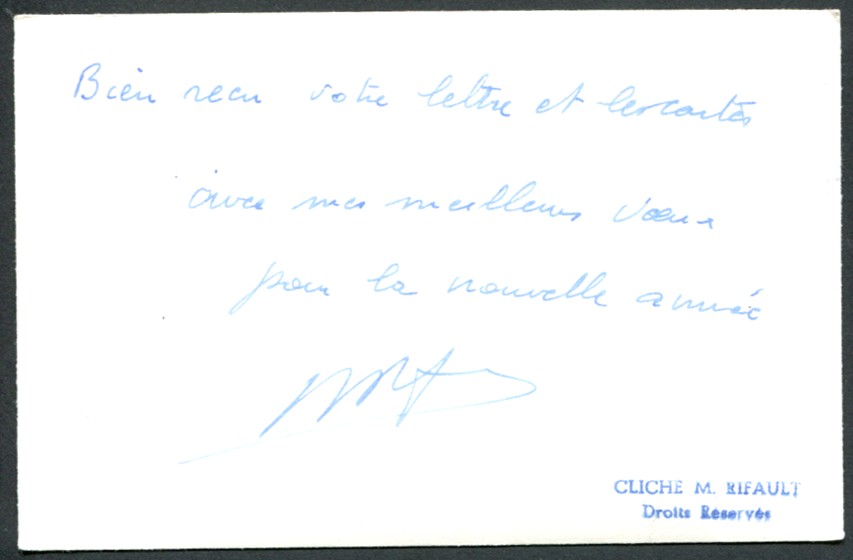 Bien recu votre lettre et les cartes
avec mes meilleurs vœux
pour la nouvelle année
CLICHE M. RIFAULT
Droits Reservés